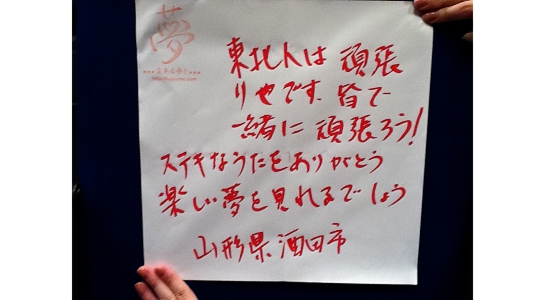 夢
東北人は頑張
りやです。皆で
一緒に頑張ろう!
ステキなうたをありがとう
楽しい夢を見れるでしょう
山形県酒田市